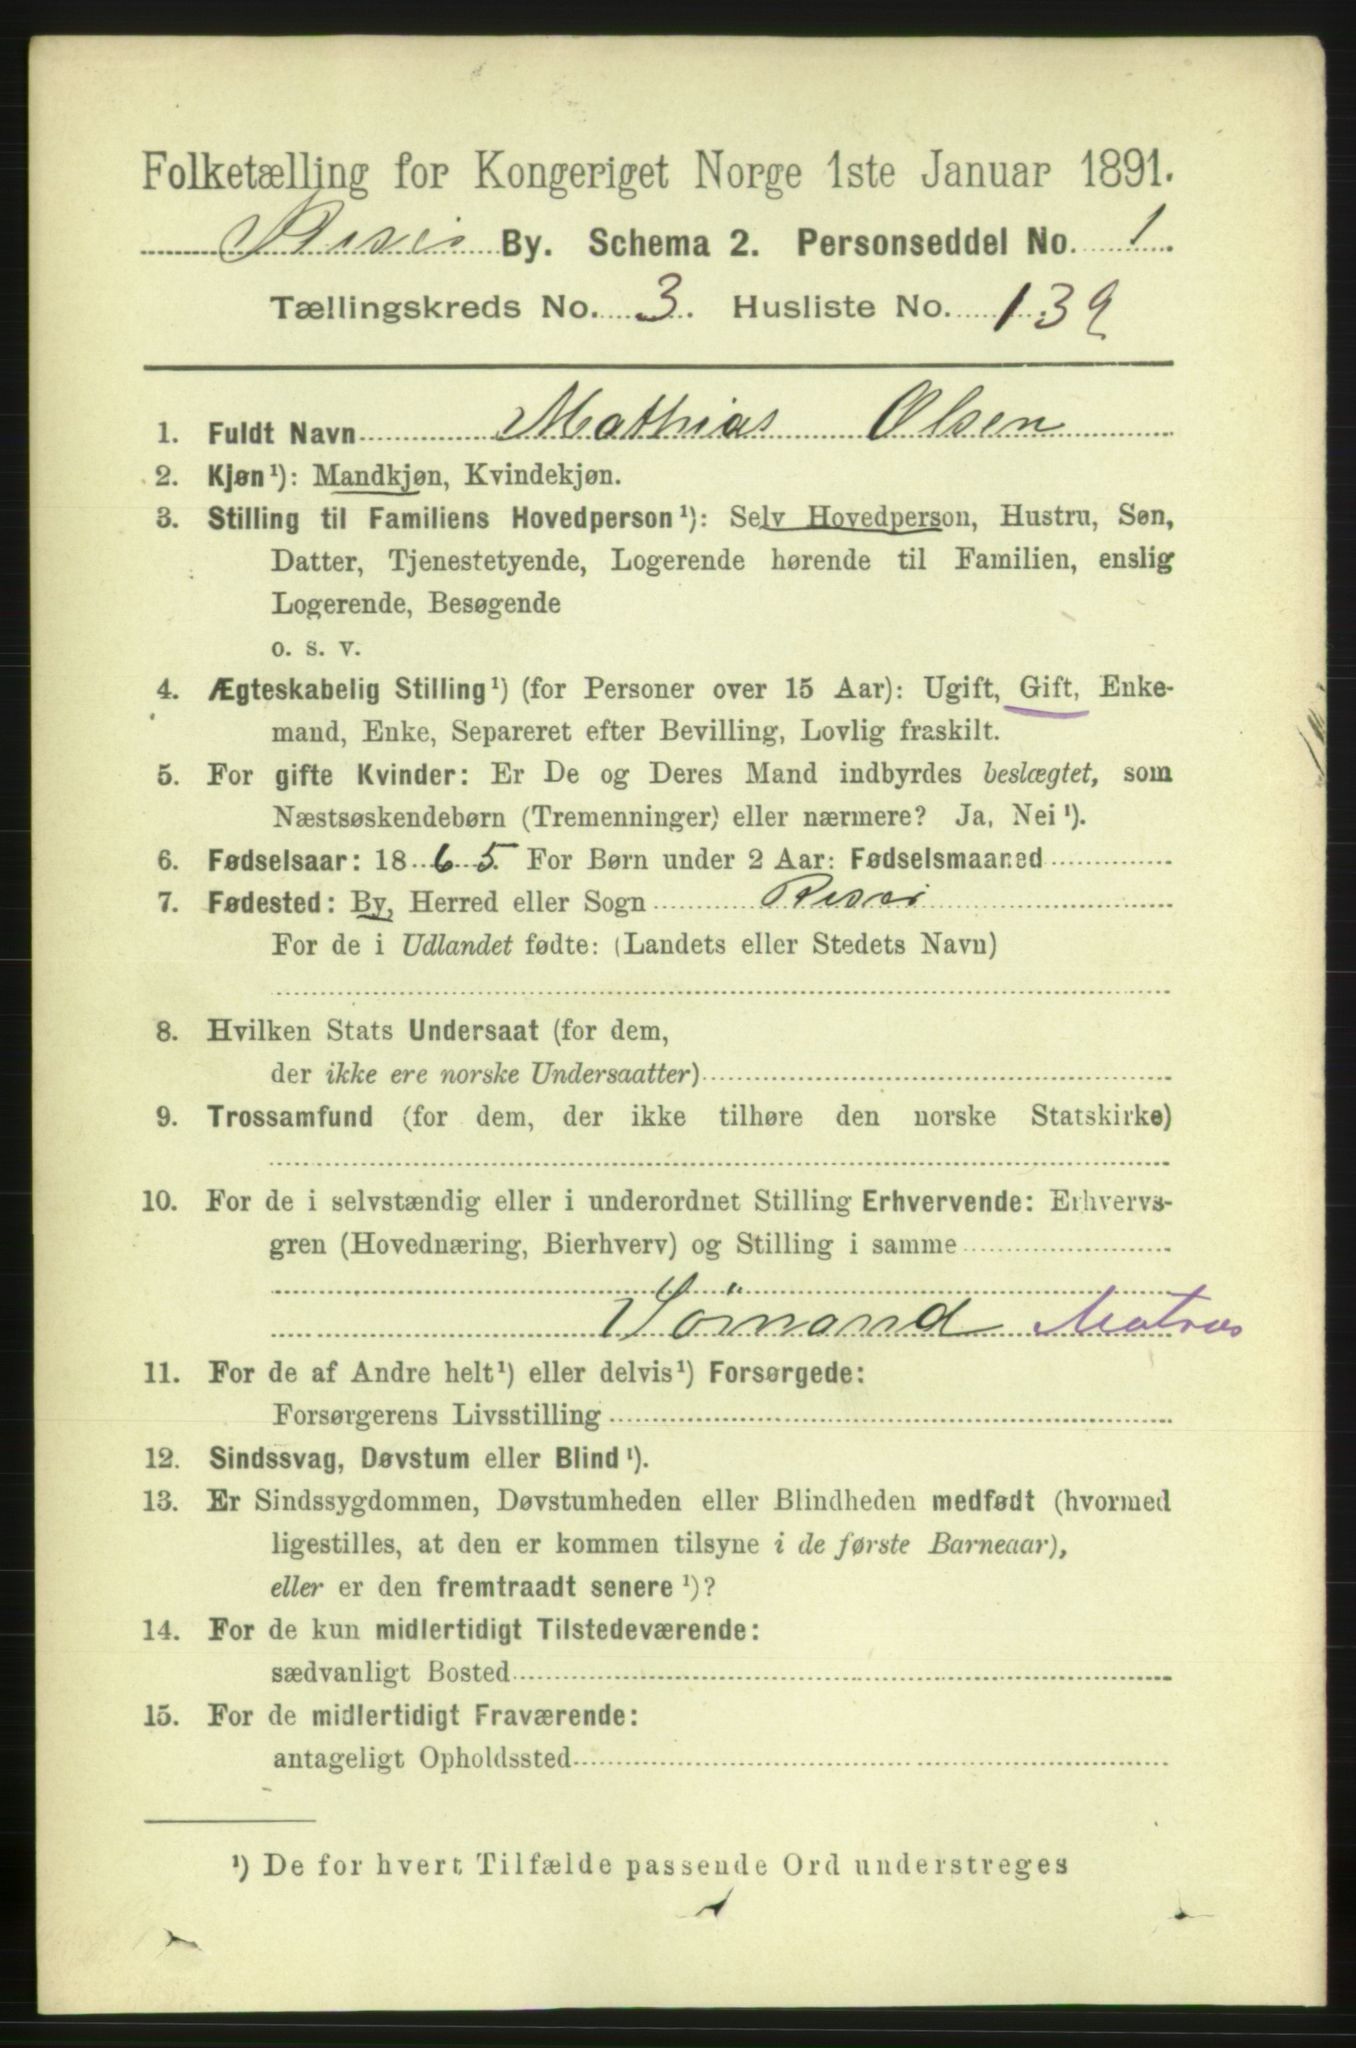 Folketælling for Kongeriget Norge 1ste Januar 1891.
Risør By. Schema 2. Personseddel No. 1.
Tællingskreds No. 3. Husliste No. 139
1. Fuldt Navn Mathias Olsen
2. Kjøn¹): Mandkjøn, Kvindekjøn.
3. Stilling til Familiens Hovedperson¹): Selv Hovedperson, Hustru, Søn,
Datter, Tjenestetyende, Logerende hørende til Familien, enslig
Logerende, Besøgende
o. s. v.
4. Ægteskabelig Stilling¹) (for Personer over 15 Aar): Ugift, Gift, Enke-
mand, Enke, Separeret efter Bevilling, Lovlig fraskilt.
5. For gifte Kvinder: Er De og Deres Mand indbyrdes beslægtet, som
Næstsøskendebørn (Tremenninger) eller nærmere? Ja, Nei¹).
6. Fødselsaar: 1865. For Børn under 2 Aar: Fødselsmaaned
7. Fødested: By, Herred eller Sogn Risør
For de i Udlandet fødte: (Landets eller Stedets Navn)
8. Hvilken Stats Undersaat (for dem,
der ikke ere norske Undersaatter)
9. Trossamfund (for dem, der ikke tilhøre den norske Statskirke)
10. For de i selvstændig eller i underordnet Stilling Erhvervende: Erhvervs-
gren (Hovednæring, Bierhverv) og Stilling i samme
Sömand Matros
11. For de af Andre helt¹) eller delvis¹) Forsørgede:
Forsørgerens Livsstilling
12. Sindssvag, Døvstum eller Blind¹).
13. Er Sindssygdommen, Døvstumheden eller Blindheden medfødt (hvormed
ligestilles, at den er kommen tilsyne i de første Barneaar),
eller er den fremtraadt senere¹)?
14. For de kun midlertidigt Tilstedeværende:
sædvanligt Bosted
15. For de midlertidigt Fraværende:
antageligt Opholdssted
¹) De for hvert Tilfælde passende Ord understreges